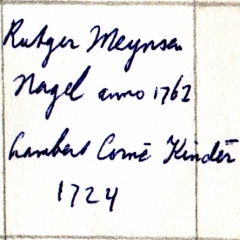 Rutger Meynsen
Nagel anno 1762
Lambert Corné Kinder
1724